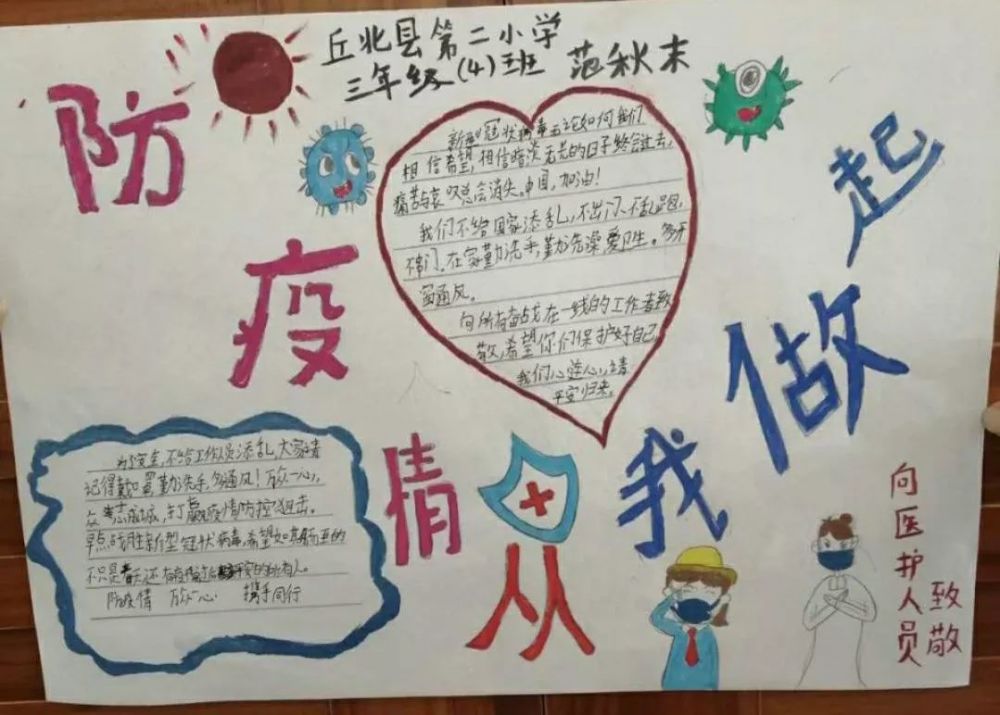 丘北县第二小学
三年级(4)班 范秋末
防疫情从我做起
新型冠状病毒无论如何我们
相信希望,相信暗淡无光的日子终会过去,
痛苦与哀叹总会消失。中国,加油!
我们不给国家添乱,不出门、不乱跑、
不串门。在家勤洗手,勤洗澡,爱卫生。多开
窗通风。
向所有奋战在一线的工作者致
敬,希望你们保护好自己,
我们心连心,请
平安归来。
为了安全,不给工作人员添乱,大家请
记得戴口罩,勤洗手,多通风!万众一心,
众志成城,打赢疫情防控狙击。
早点战胜新型冠状病毒,希望如期而至的
不只是春天还有疫情过后平安的所有人。
防疫情 万众一心 携手同行
向医护人员
致敬